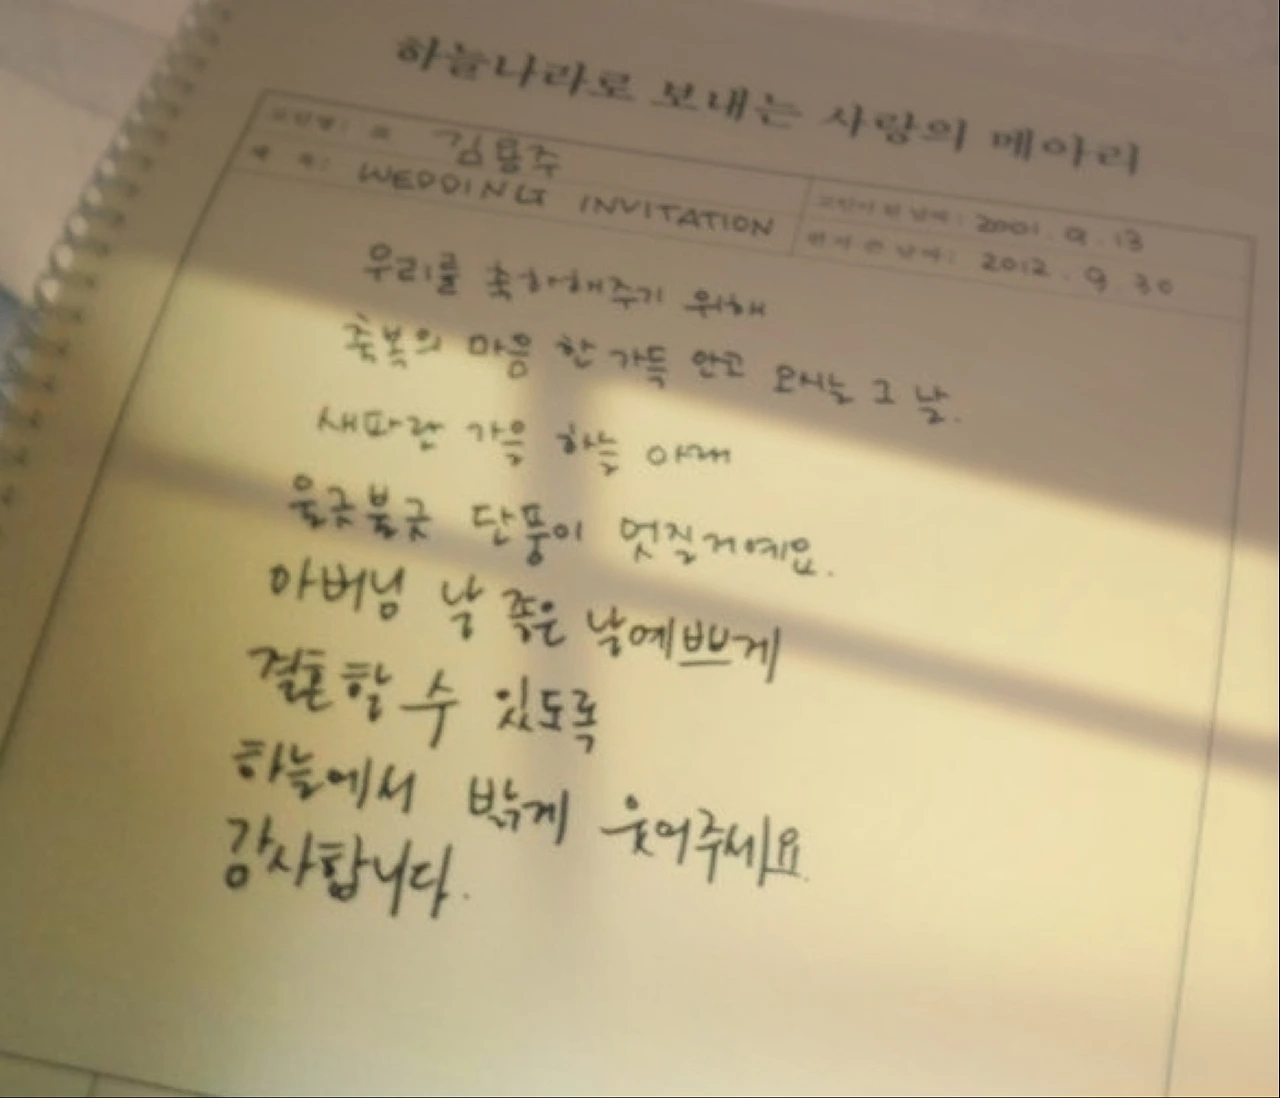 하늘나라로 보내는 사랑의 메아리
고인명: 故 김용주
고인이 된 날짜: 2001. 9. 13
제 목: WEDDING INVITATION
편지 쓴 날짜: 2012. 9. 30
우리를 축하해주기 위해
축복의 마음 한 가득 안고 오시는 그 날.
새파란 가을 하늘 아래
울긋불긋 단풍이 멋질거예요.
아버님 날 좋은 날 예쁘게
결혼할 수 있도록
하늘에서 밝게 웃어주세요
감사합니다.